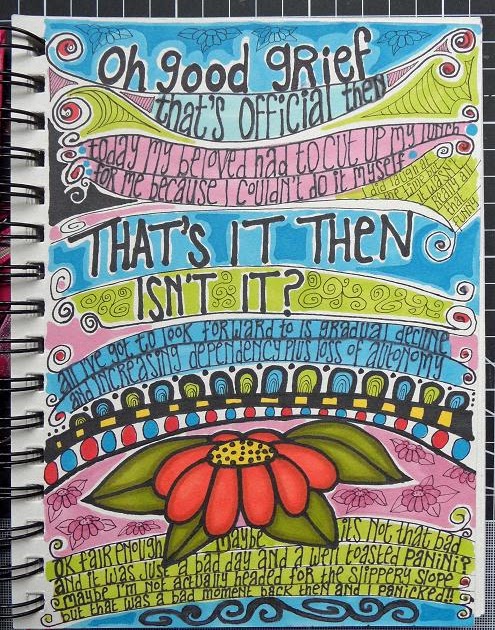 Oh good grief
that's official then
today my beloved had to cut up my lunch
for me because I couldn't do it myself
I did laugh at
the time but
it wasn't
really all
that
funny
THAT'S IT THEN
ISN'T IT?
all I've got to look forward to is gradual decline
and increasing dependency plus loss of autonomy
OK fair enough maybe its not that bad
and it was just a bad day and a well toasted panini?
maybe I'm not actually headed for the slippery slope
but that was a bad moment back then and I panicked!!